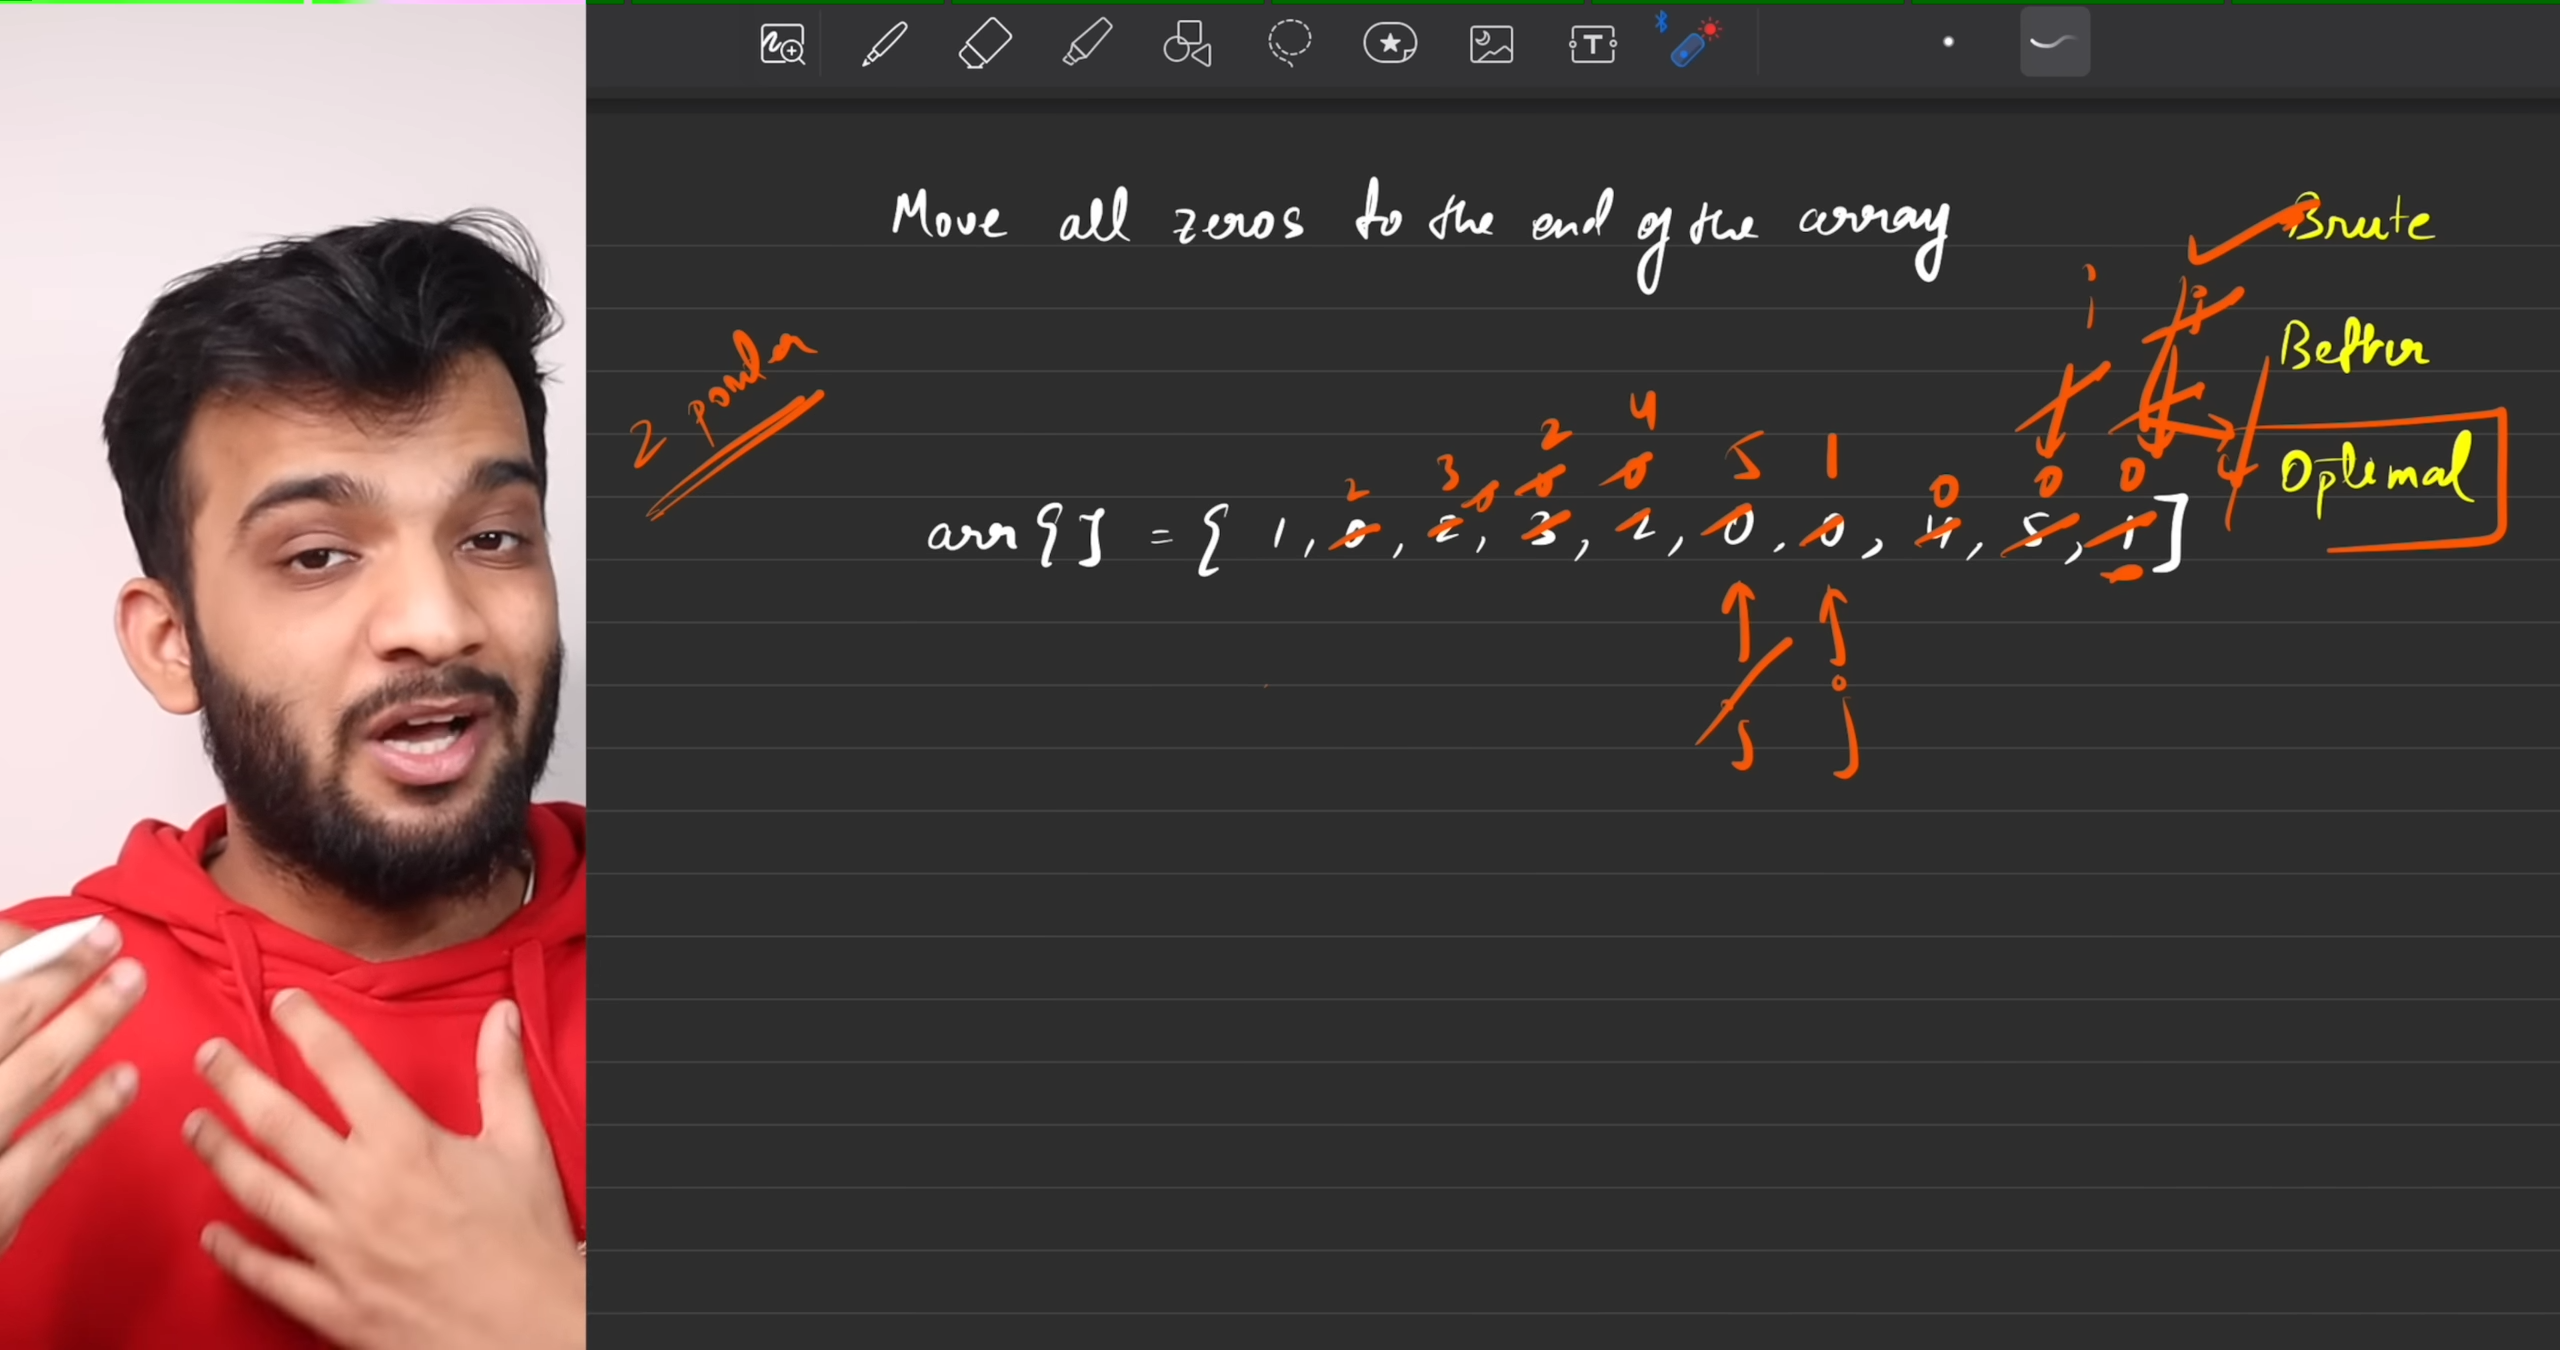 Move all zeros to the end of the array
Brute
i
Better
2 pointer
Optimal
2 3 0 2 0 4 0 5 1 0 0 0
arr[] = { 1, 0, 2, 3, 2, 0, 0, 4, 5, 1 ]
j j